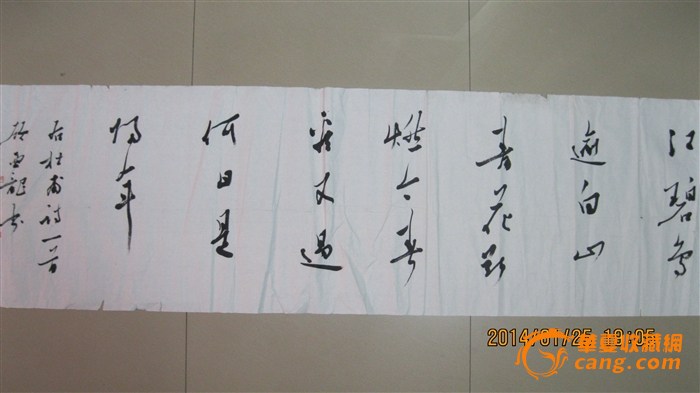 江碧鸟
逾白山
青花欲
燃今春
看又过
何日是
归年
右杜甫诗一首
亚龍书
2014/01/25
華夏收藏網
cang.com